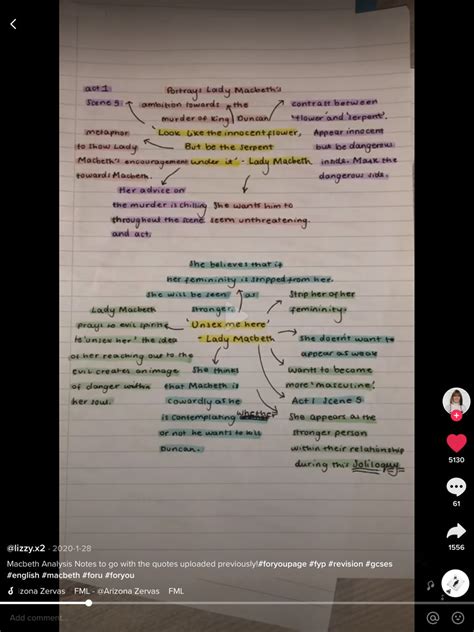 act 1
Scene 5
Portrays Lady Macbeth's
ambition towards the
murder of King Duncan
contrast between
'flower' and 'serpent'.
Appear innocent
but be dangerous
inside. Mask the
dangerous side.
metaphor
to show Lady
Macbeth's encouragement
towards Macbeth.
'Look like the innocent flower,
But be the serpent
under it' - Lady Macbeth
Her advice on
the murder is chilling
throughout the scene
and act.
She wants him to
seem unthreatening.
She believes that if
her femininity is stripped from her
She will be seen as
stronger.
Strip her of her
femininity.
Lady Macbeth
prays to evil spirits
to 'unsex her' the idea
of her reaching out to the
evil creates an image
of danger within
her soul.
'Unsex me here'
- Lady Macbeth
She doesn't want to
appear as weak
wants to become
more 'masculine'
She thinks
that Macbeth is
cowardly as he
is contemplating whether
or not he wants to kill
Duncan.
Act 1 Scene 5
She appears as the
stronger person
within their relationship
during this Soliloquy
5130
61
1556
@lizzy.x2 · 2020-1-28
Macbeth Analysis Notes to go with the quotes uploaded previously!#foryoupage #fyp #revision #gcses
#english #macbeth #foru #foryou
izona Zervas FML - @Arizona Zervas FML
Add comment...